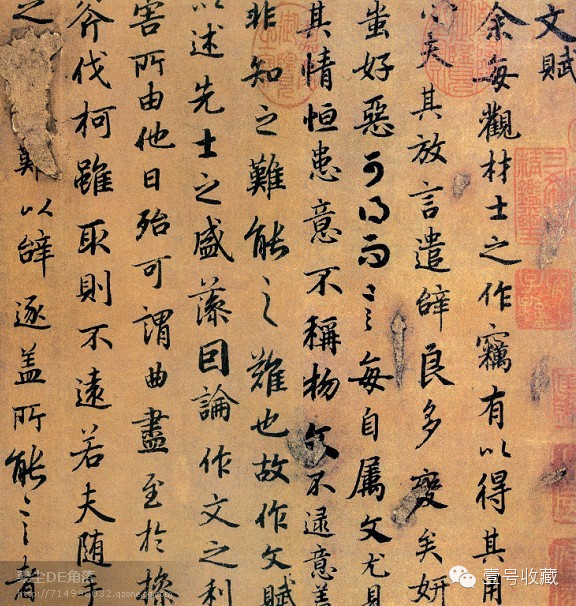 文賦
余每觀材士之作竊有以得其用
心夫其放言遣辭良多變矣妍
蚩好惡可得而言每自属文尤見
其情恒患意不稱物文不逮意盖
非知之難能之難也故作文賦
以述先士之盛藻因論作文之利
害所由他日殆可謂曲盡至於操
斧伐柯雖取則不遠若夫随手
之難以辭逐盖所能言者
尘DE角落
壹号收藏